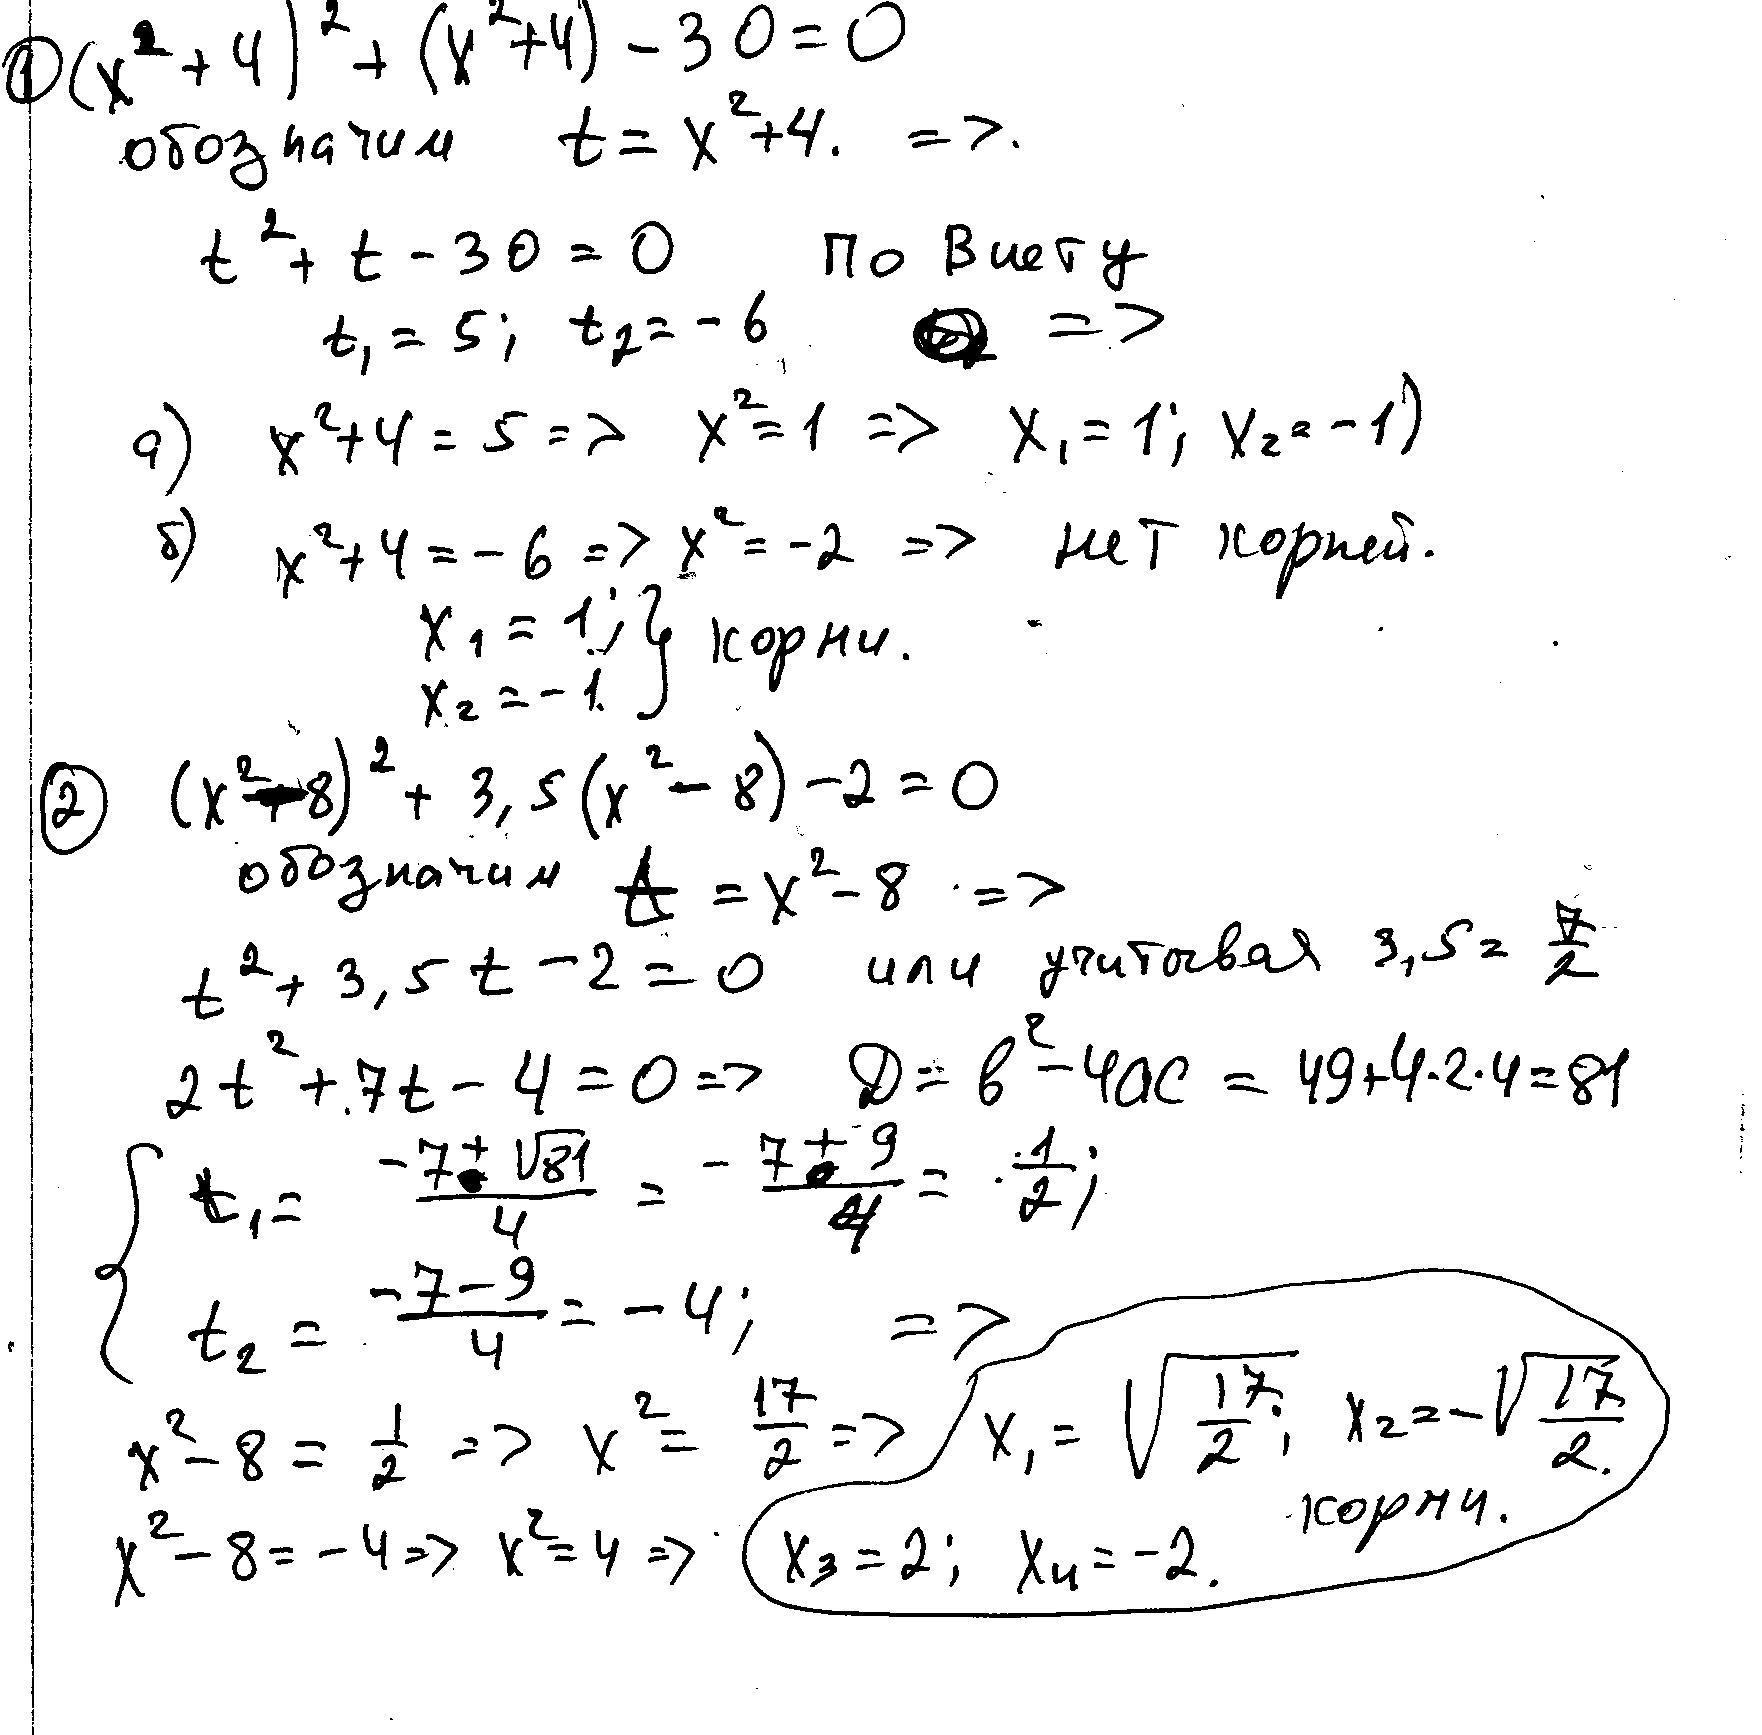 ① (x² + 4)² + (x² + 4) − 30 = 0
обозначим t = x² + 4. =>.
t² + t − 30 = 0 По Виету
t₁ = 5; t₂ = − 6 =>
а) x² + 4 = 5 => x² = 1 => x₁ = 1; x₂ = −1)
б) x² + 4 = − 6 => x² = −2 => нет корней.
x₁ = 1; } корни.
x₂ = −1.
② (x² − 8)² + 3,5(x² − 8) − 2 = 0
обозначим t = x² − 8 =>
t² + 3,5t − 2 = 0 или учитывая 3,5 = 7/2
2t² + 7t − 4 = 0 => Д = в² − 4ac = 49 + 4·2·4 = 81
{ t₁ = (−7 + √81)/4 = (−7 + 9)/4 = 1/2;
t₂ = (−7 − 9)/4 = − 4; =>
x² − 8 = 1/2 => x² = 17/2 => x₁ = √(17/2); x₂ = −√(17/2).
корни.
x² − 8 = − 4 => x² = 4 => x₃ = 2; x₄ = −2.